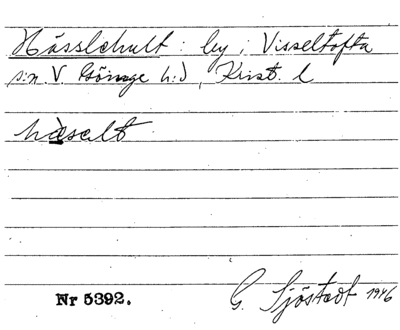 Hässlehult : by i Visseltofta
s:n. V. Göinge h:d, Krist. l
hàsalt
G. Sjöstedt 1946
Nr 5392.